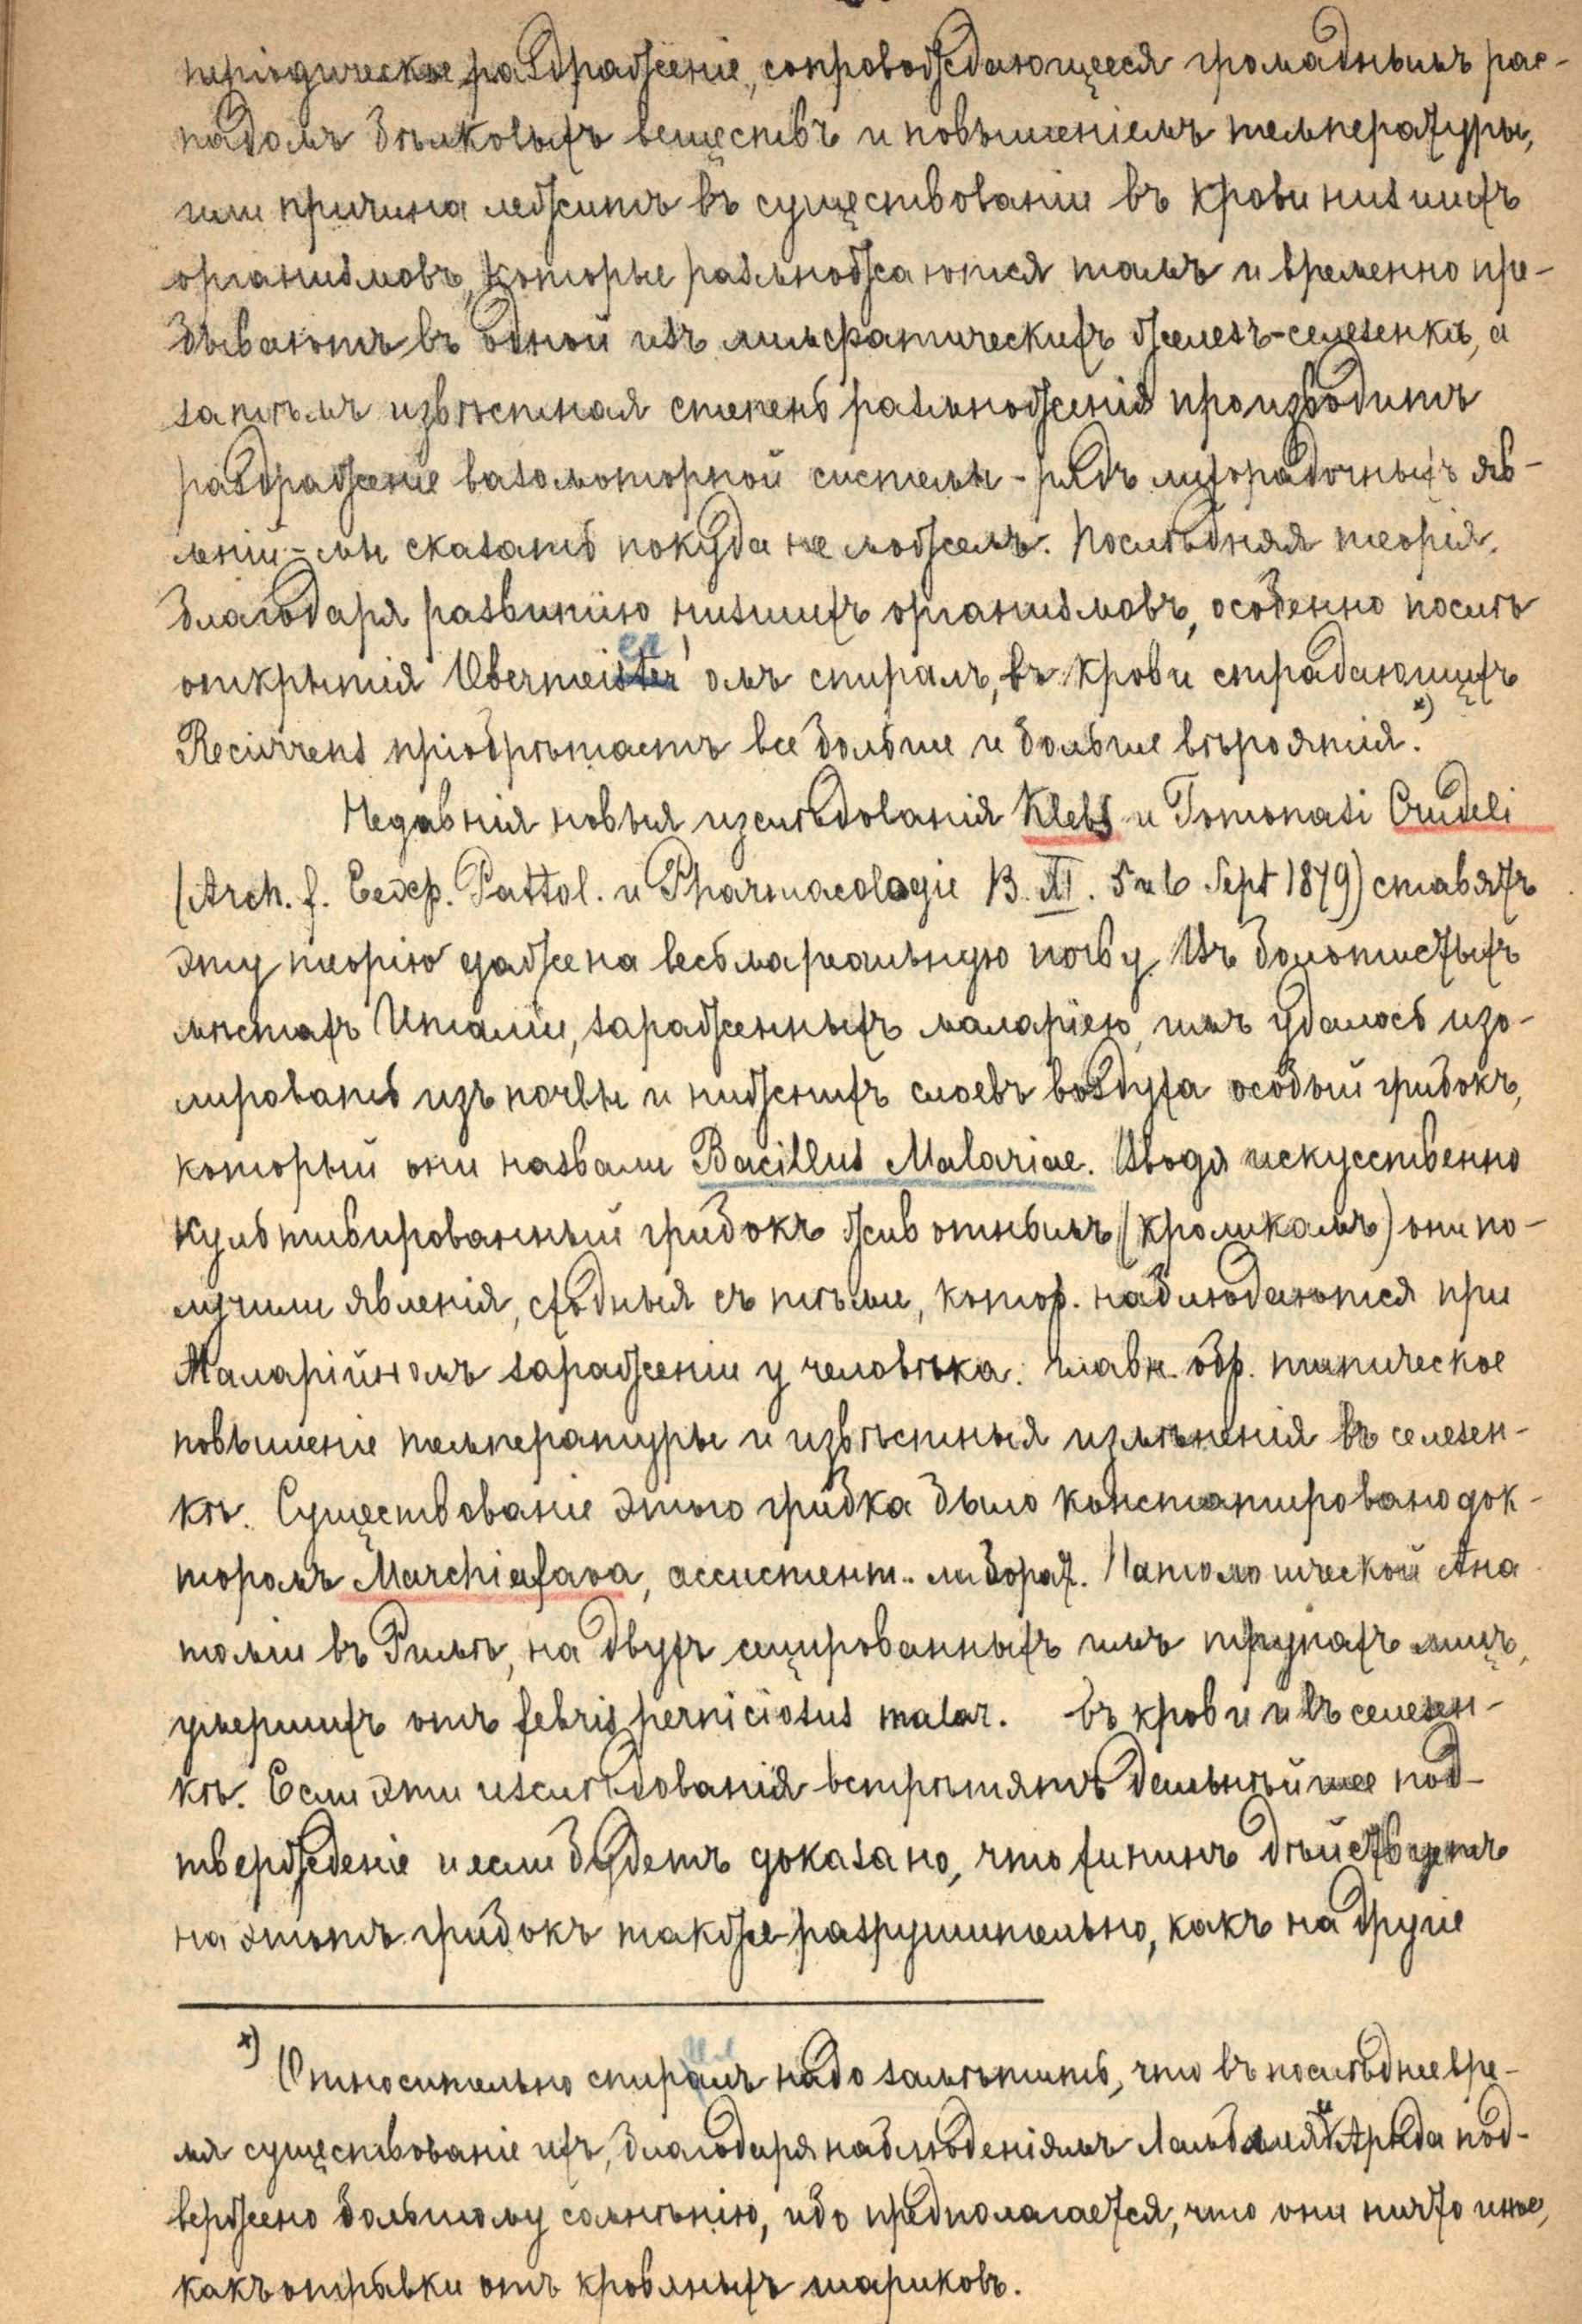 періодическое раздраженіе, сопровождающееся громаднымъ рас-
падомъ бѣлковыхъ веществъ и повышеніемъ температуры,
или причина лежитъ въ существованіи въ крови низшихъ
организмовъ, которые размножаются тамъ и временно пре-
бываютъ въ одной изъ лимфатическихъ железъ-селезенкѣ, а
затѣмъ извѣстная степень размноженія производитъ
раздраженіе вазомоторной системы - рядъ лихорадочныхъ яв-
леній - мы сказать покуда не можемъ. Послѣдняя теорія,
благодаря развитію низшихъ организмовъ, особенно послѣ
открытія Obermeister'омъ спираль, въ крови страдающихъ
Recurrens пріобрѣтаетъ все больше и больше вѣроятія. x)
Недавнія новыя изслѣдованія Klebs и Tomonasi Crudeli
(Arch. f. Eexp. Pattol. u Pharmacologie B. XI. 5 u 6 Sept 1879) ставятъ
эту теорію даже на весьма реальную почву. Въ болотистыхъ
мѣстахъ Италіи, зараженныхъ маларіею, имъ удалось изо-
лировать изъ почвы и нижнихъ слоевъ воздуха особый грибокъ,
который они назвали Bacillus Malariae. Вводя искусственно
культивированный грибокъ животнымъ (кроликамъ) они по-
лучили явленія, сходныя съ тѣми, котор. наблюдаются при
Маларійномъ зараженіи у человѣка: главн. обр. типическое
повышеніе температуры и извѣстныя измѣненія въ селезен-
кѣ. Существованіе этого грибка было констатировано док-
торомъ Marchiafava, ассистент. лаборат. Патологической Ана
томіи въ Римѣ, на двухъ сецированныхъ имъ трупахъ лицъ,
умершихъ отъ febris perniciosus malar. въ крови и въ селезен-
кѣ. Если эти изслѣдованія встрѣтятъ дальнѣйшее под-
твержденіе и если будетъ доказано, что хининъ дѣйствуетъ
на этотъ грибокъ также разрушительно, какъ на другіе
x) Относительно спираль надо замѣтить, что въ послѣднее вре-
мя существованіе ихъ, благодаря наблюденіямъ и Арнда под-
вержено большому сомнѣнію, ибо предполагается, что они ничто иное,
какъ отрывки отъ кровяныхъ шариковъ.